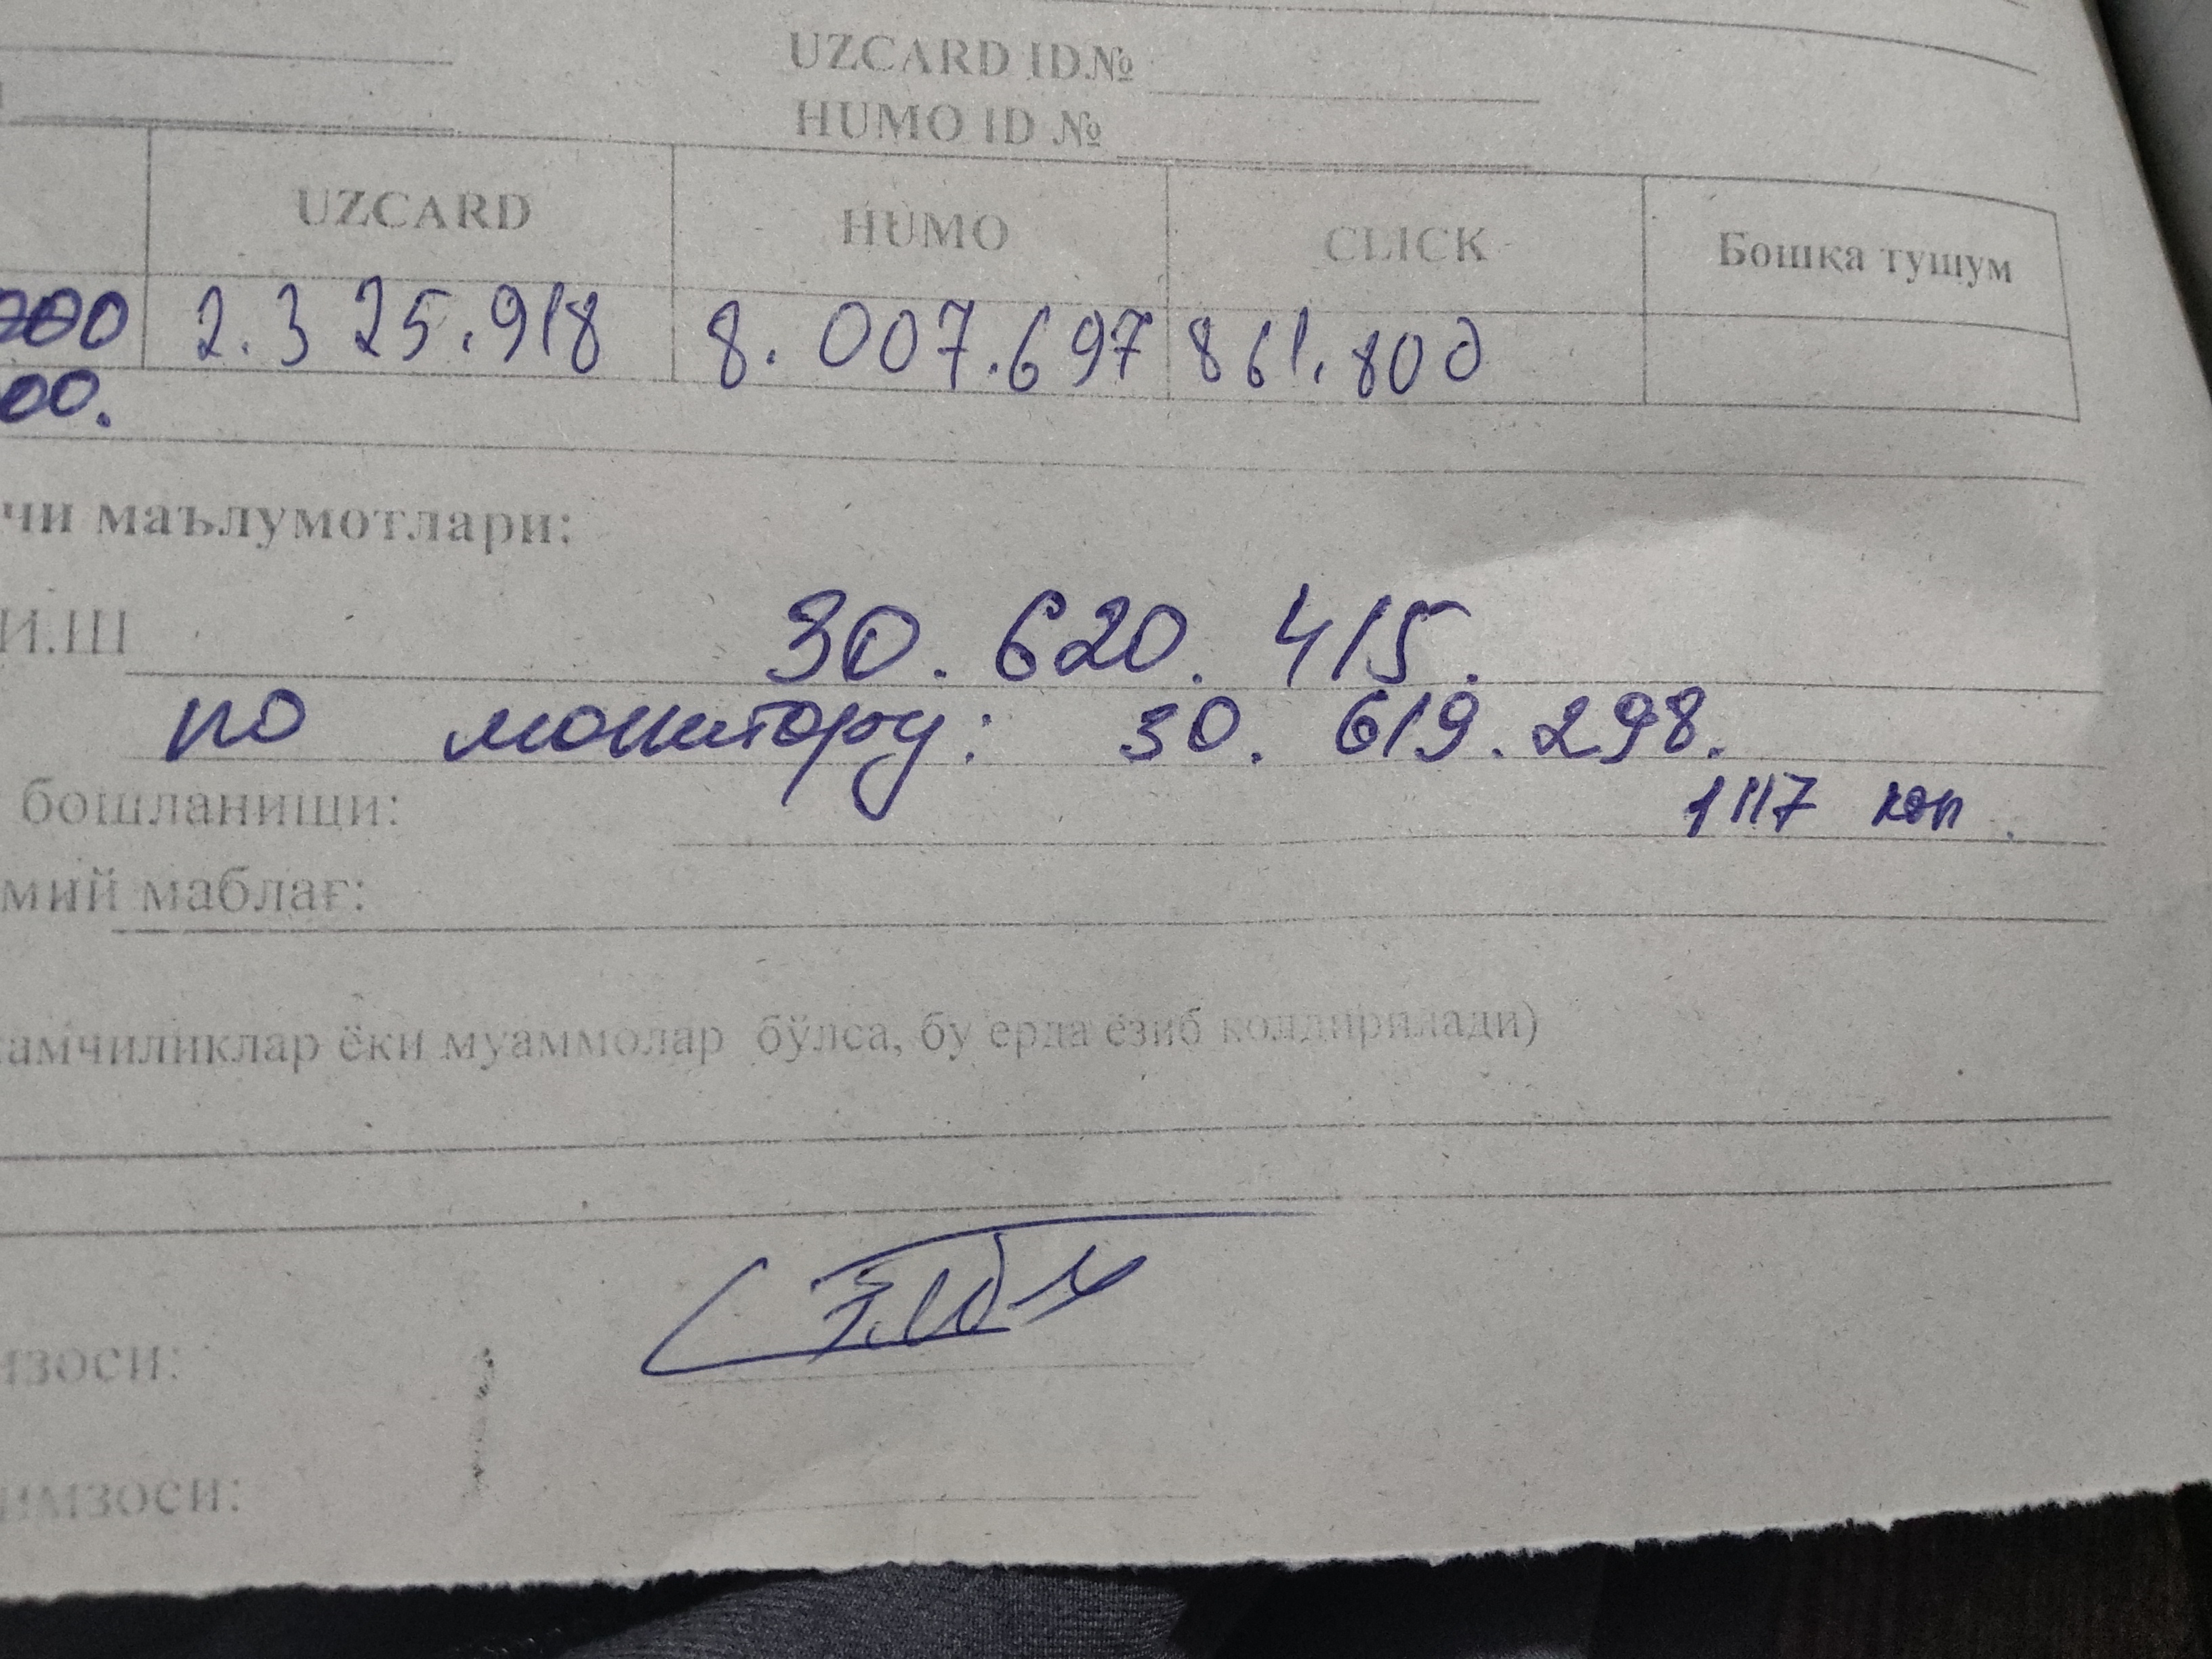 UZCARD ID№
HUMO ID №
UZCARD HUMO CLICK Бошқа тушум
2.325.918 8.007.697 861.800
00.
чи маълумотлари:
И.Ш 30.620.415.
по монитору: 30.619.298.
бошланищи: 1117 коп.
мий маблағ:
камчиликлар ёки муаммолар бўлса, бу ерда ёзиб колдирилади)
изоси:
имзоси: